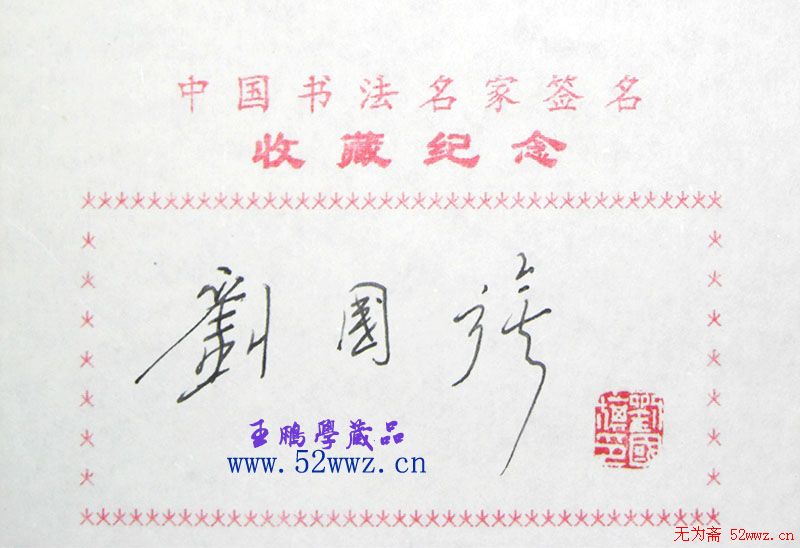 中国书法名家签名
收藏纪念
劉國
王鹏學藏品
www.52wwz.cn
无为斋 52wwz.cn